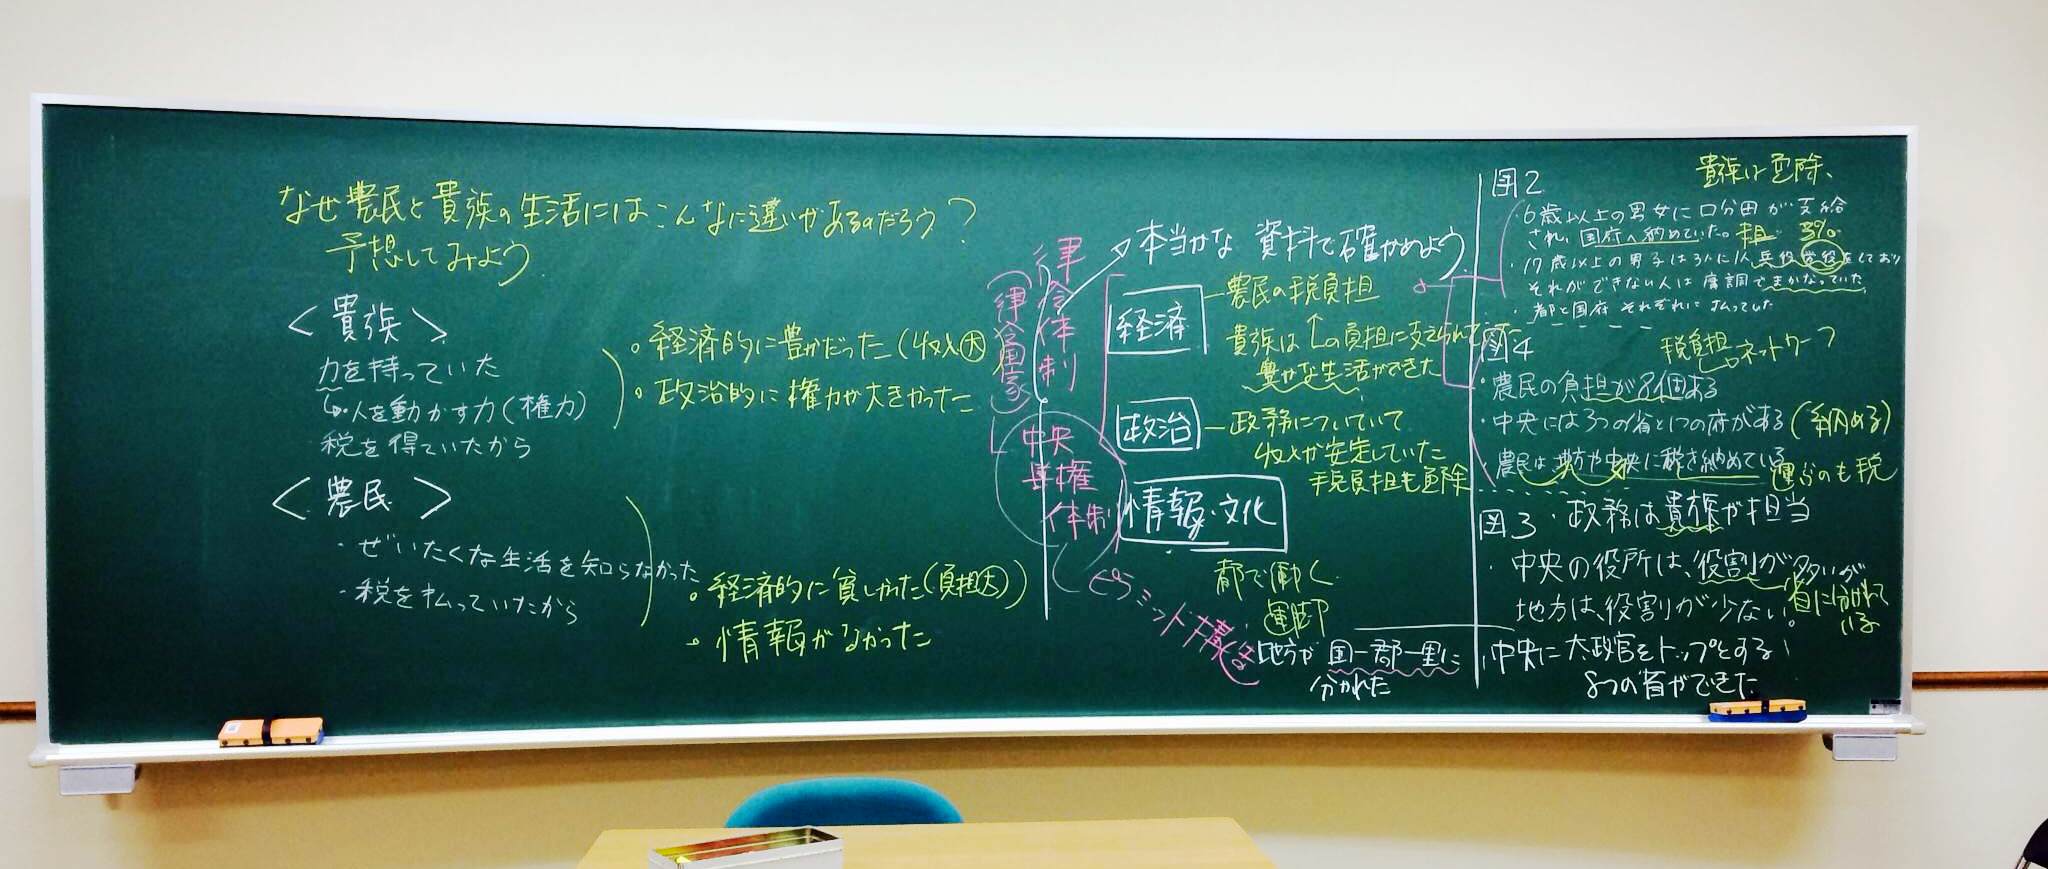 なぜ農民と貴族の生活にはこんなに違いがあるのだろう?
予想してみよう
<貴族>
力を持っていた
人を動かす力(権力)
税を得ていたから
。経済的に豊かだった(収入大)
。政治的に権力が大きかった
<農民>
・ぜいたくな生活を知らなかった
・税を払っていたから
。経済的に貧しかった(負担大)
。情報がなかった
律令体制
(律令国家)
中央
集権
体制
ピラミッド構造
本当かな 資料で確かめよう
経済
農民の税負担
貴族は↑の負担に支えられていた
豊かな生活ができた
政治
政務についていて
収入が安定していた
税負担も免除
情報・文化
都で働く
運脚
地方が国-郡-里に
分かれた
図2
貴族は免除、
・6歳以上の男女に口分田が支給
され、国府へ納めていた。租 3%
・17歳以上の男子は3人に1人兵役労役をしており
それができない人は庸調でまかなっていた
・都と国府 それぞれに払っていた
図4
税負担
ネットワーク
・農民の負担が8個ある
・中央には3つの省と1つの府がある(納める)
・農民は地方や中央に税を納めている
運ぶのも税
図3・政務は貴族が担当
・中央の役所は、役割が多いが
地方は、役割が少ない。
省に分かれて
いる
・中央に太政官をトップとする
8つの省ができた